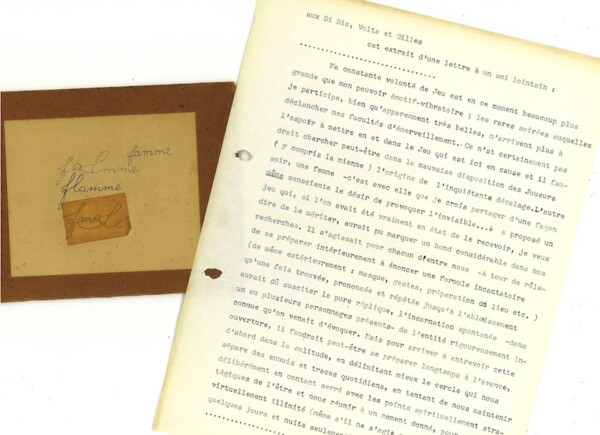 famme
femme
flamme
aux Di Dio, Volts et Gilles
cet extrait d'une lettre à un ami lointain :
Ma constante volonté de Jeu est en ce moment beaucoup plus
grande que mon pouvoir émotif-vibratoire ; les rares soirées auxquelles
je participe, bien qu'apparemment très belles, n'arrivent plus à
déclancher mes facultés d'émerveillement. Ce n'st certainement pas
l'espoir à mettre en et dans le Jeu qui est ici en cause et il fau-
drait chercher peut-être dans la mauvaise disposition des Joueurs
( y compris la mienne ) l'origine de l'inquiétante décalage. L'autre
soir, une femme -c'est avec elle que je crois partager d'une façon
même consciente le désir de provoquer l'invisible...- a proposé un
jeu qui, si l'on avait été vraiment en état de le recevoir, je veux
dire de la mériter, aurait pu marquer un bond considérable dans nos
recherches. Il s'agissait pour chacun d'entre nous -à tour de rôle-
de se préparer intérieurement à énoncer une formule incantatoire
(de même extérieurement : masque, gestes, préparation du lieu etc. )
qu'une fois trouvée, prononcée et répétée jusqu'à l'éblouissement
aurait dû susciter le pure réplique, l'incarnation spontanée -dans
un ou plusieurs personnages présents- de l'entité rigoureusement in-
connue qu'on venait d'évoquer. Mais pour arriver à entrevoir cette
ouverture, il faudrait peut-être se préparer longtemps à l'avance,
d'abord dans la solitude, en délimitant mieux le cercle qui nous
sépare des ennuis et tracas quotidiens, en tentant de nous maintenir
délibérément en contact serré avec les points spirituellement stra-
tégiques de l'être et nous réunir à un moment donné, pou
virtuellement illimité (même s'il ne s'agit
quelques jours et nuits seulemen